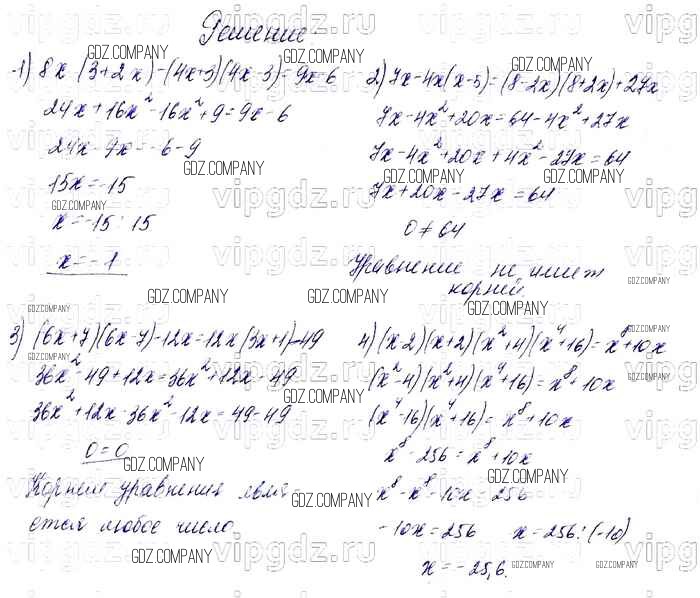 Решение
1) 8x (3+2x)-(4x+3)(4x-3)=9x-6
24x+16x²-16x²+9=9x-6
24x-9x=-6-9
15x=-15
x=-15:15
x=-1
2) 7x-4x(x-5)=(8-2x)(8+2x)+27x
7x-4x²+20x=64-4x²+27x
7x-4x²+20x+4x²-27x=64
7x+20x-27x=64
0≠64
Уравнение не имеет
корней
3) (6x+7)(6x-7)+12x=12x(3x+1)-49
36x²-49+12x=36x²+12x-49
36x²+12x-36x²-12x=49-49
0=0
Корнем уравнения явля-
ется любое число
4) (x-2)(x+2)(x²+4)(x⁴+16)=x⁸+10x
(x²-4)(x²+4)(x⁴+16)=x⁸+10x
(x⁴-16)(x⁴+16)=x⁸+10x
x⁸-256=x⁸+10x
x⁸-x⁸-10x=256
-10x=256 x=256:(-10)
x=-25,6.
GDZ.COMPANY
vipgdz.ru